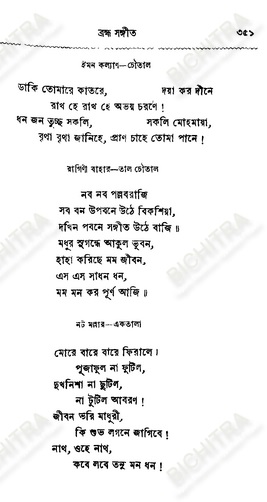 ব্রহ্ম সঙ্গীত ৩৫১
ইমন কল্যাণ—চৌতাল
ডাকি তোমারে কাতরে, দয়া কর দীনে
রাখ হে রাখ হে অভয় চরণে !
ধন জন তুচ্ছ সকলি, সকলি মোহমায়া,
বৃথা বৃথা জানিহে, প্রাণ চাহে তোমা পানে !
রাগিণী বাহার—তাল চৌতাল
নব নব পল্লবরাজি
সব বন উপবনে উঠে বিকশিয়া,
দখিন পবনে সঙ্গীত উঠে বাজি ॥
মধুর সুগন্ধে আকুল ভুবন,
হাহা করিছে মম জীবন,
এস এস সাধন ধন,
মম মন কর পূর্ণ আজি ॥
নট মল্লার—একতালা
মোরে বারে বারে ফিরালে।
পূজাফুল না ফুটিল,
দুখনিশা না ছুটিল,
না টুটিল আবরণ !
জীবন ভরি মাধুরী,
কি শুভ লগনে জাগিবে !
নাথ, ওহে নাথ,
কবে লবে তনু মন ধন !
BICHITRA